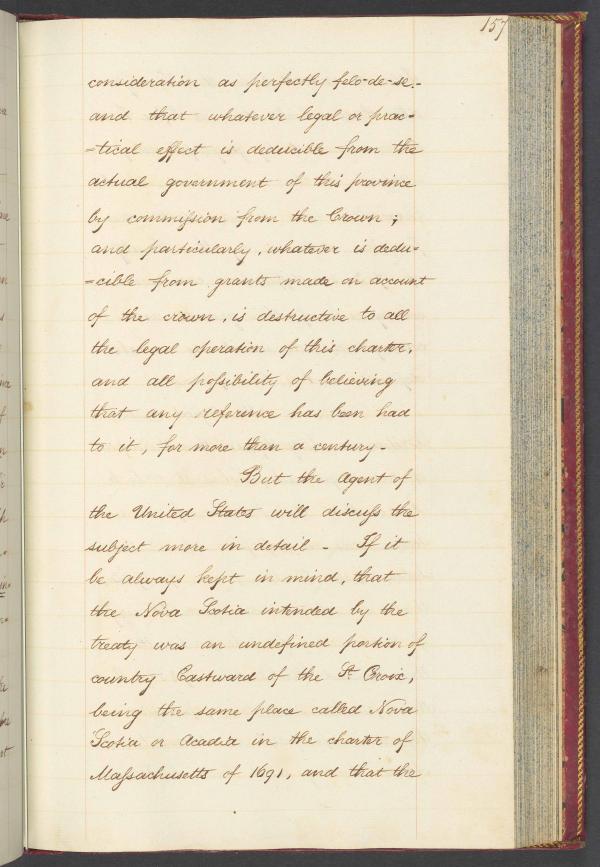 157
consideration as perfectly felo-de-se.-
and that whatever legal or prac-
=tical effect is deducible from the
actual government of this province
by commission from the Crown;
and particularly, whatever is dedu-
=cible from grants made on account
of the crown, is destructive to all
the legal operation of this charter,
and all possibility of believing
that any reference has been had
to it, for more than a century-
But the Agent of
the United States will discuss the
subject more in detail - If it
be always kept in mind, that
the Nova Scotia intended by the
treaty was an undefined portion of
country Eastward of the St. Croix,
being the same place called Nova
Scotia or Acadia in the charter of
Massachusetts of 1691, and that the